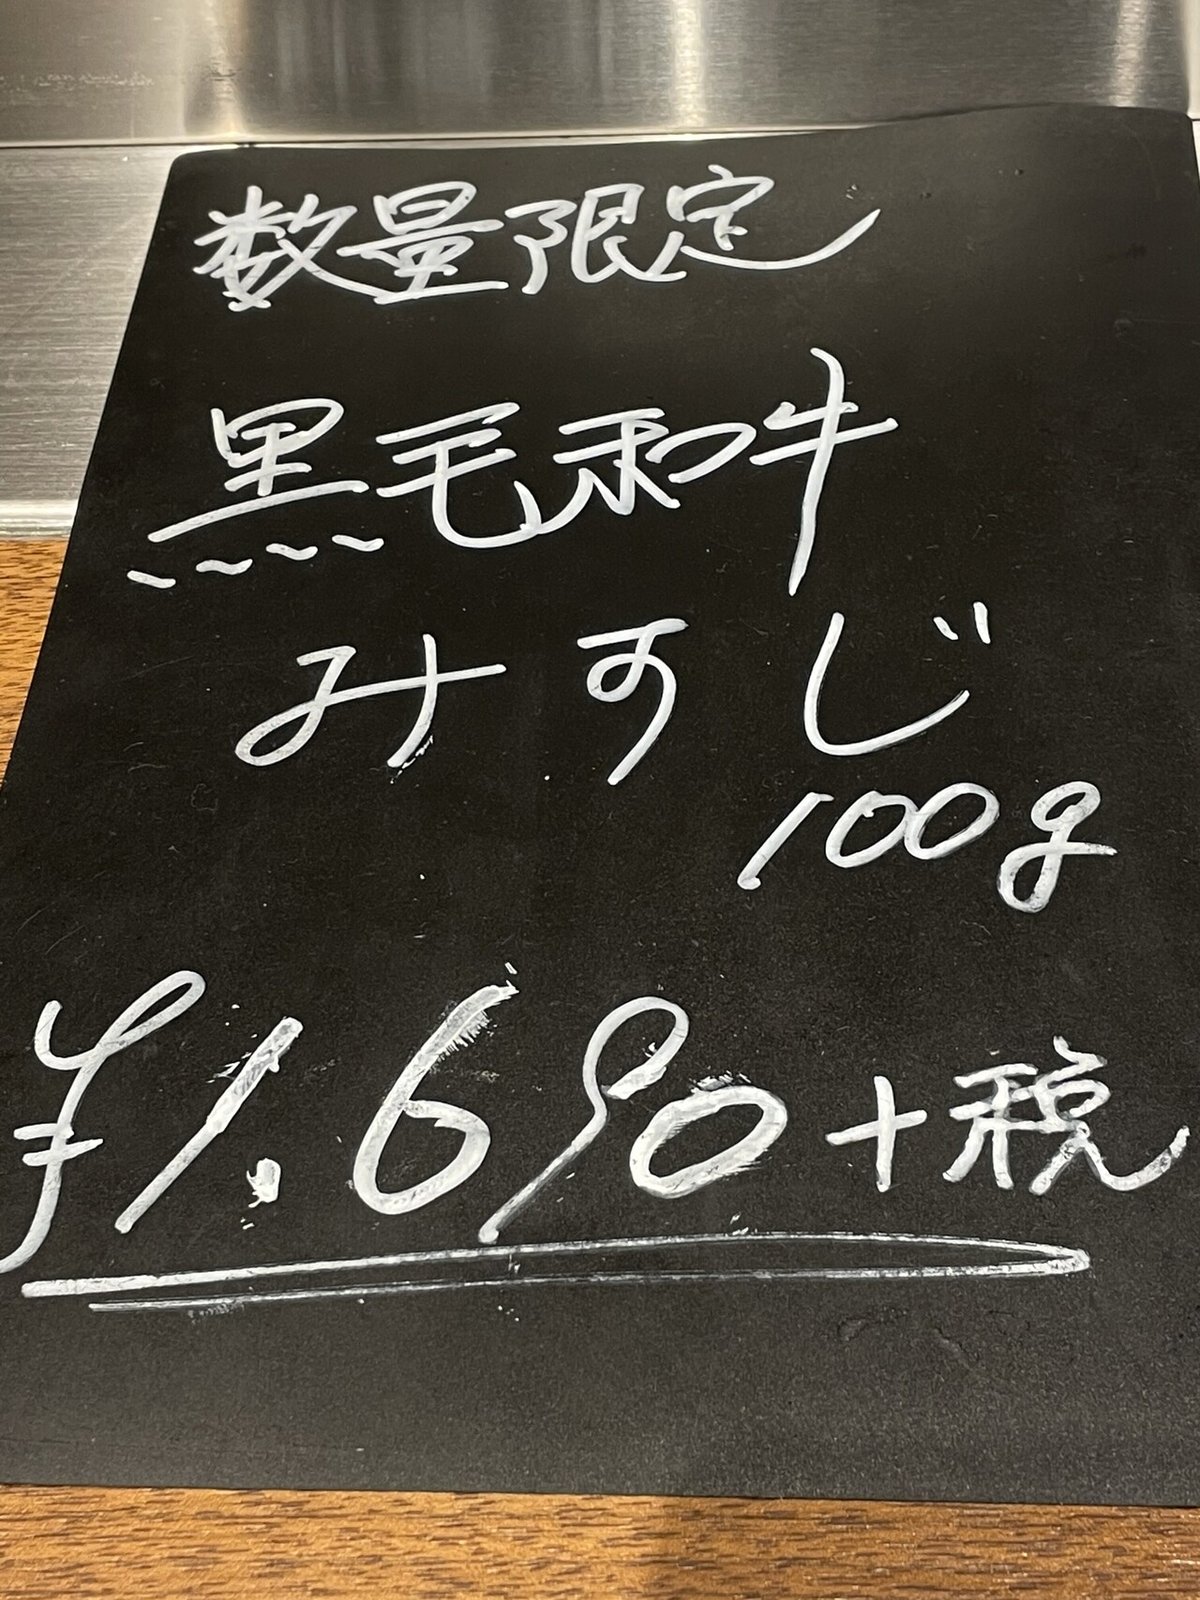 数量限定
黒毛和牛
みすじ
100g
¥1.690+税